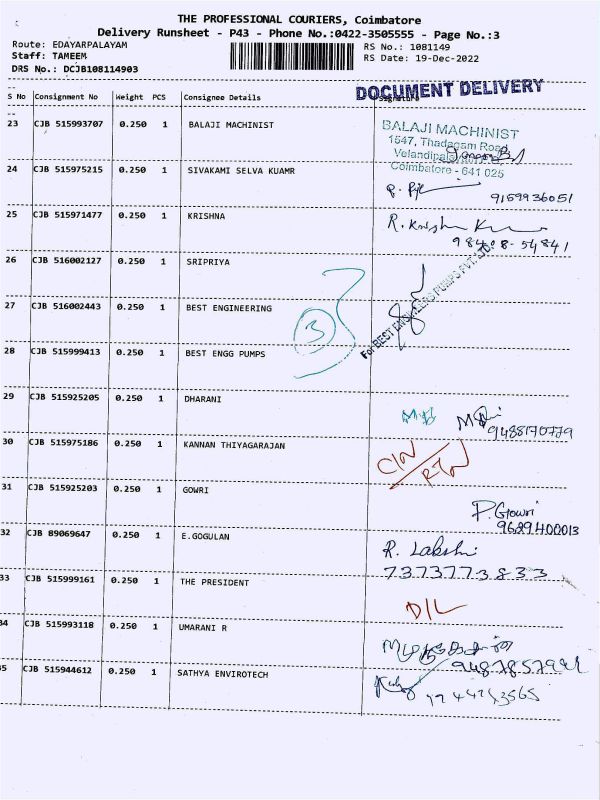 THE PROFESSIONAL COURIERS, Coimbatore
Delivery Runsheet - P43 - Phone No.:0422-3505555 - Page No.:3
Route: EDAYARPALAYAM RS No.: 1081149
Staff: TAMEEM RS Date: 19-Dec-2022
DRS No.: DCJB108114903
DOCUMENT DELIVERY
S No Consignment No Weight PCS Consignee Details Signature
23 CJB 515993707 0.250 1 BALAJI MACHINIST
BALAJI MACHINIST
1547, Thadagam Road
Coimbatore - 641 025
24 CJB 515975215 0.250 1 SIVAKAMI SELVA KUAMR
9159936051
25 CJB 515971477 0.250 1 KRISHNA
98408-54841
26 CJB 516002127 0.250 1 SRIPRIYA
27 CJB 516002443 0.250 1 BEST ENGINEERING
3
For BEST ENGINEERS PUMPS PVT. LTD.
28 CJB 515999413 0.250 1 BEST ENGG PUMPS
29 CJB 515925205 0.250 1 DHARANI
9488170779
30 CJB 515975186 0.250 1 KANNAN THIYAGARAJAN
31 CJB 515925203 0.250 1 GOWRI
P. Gowri
9629400013
32 CJB 89069647 0.250 1 E.GOGULAN
R. Lakshi
7373773833
33 CJB 515999161 0.250 1 THE PRESIDENT
D/L
34 CJB 515993118 0.250 1 UMARANI R
35 CJB 515944612 0.250 1 SATHYA ENVIROTECH